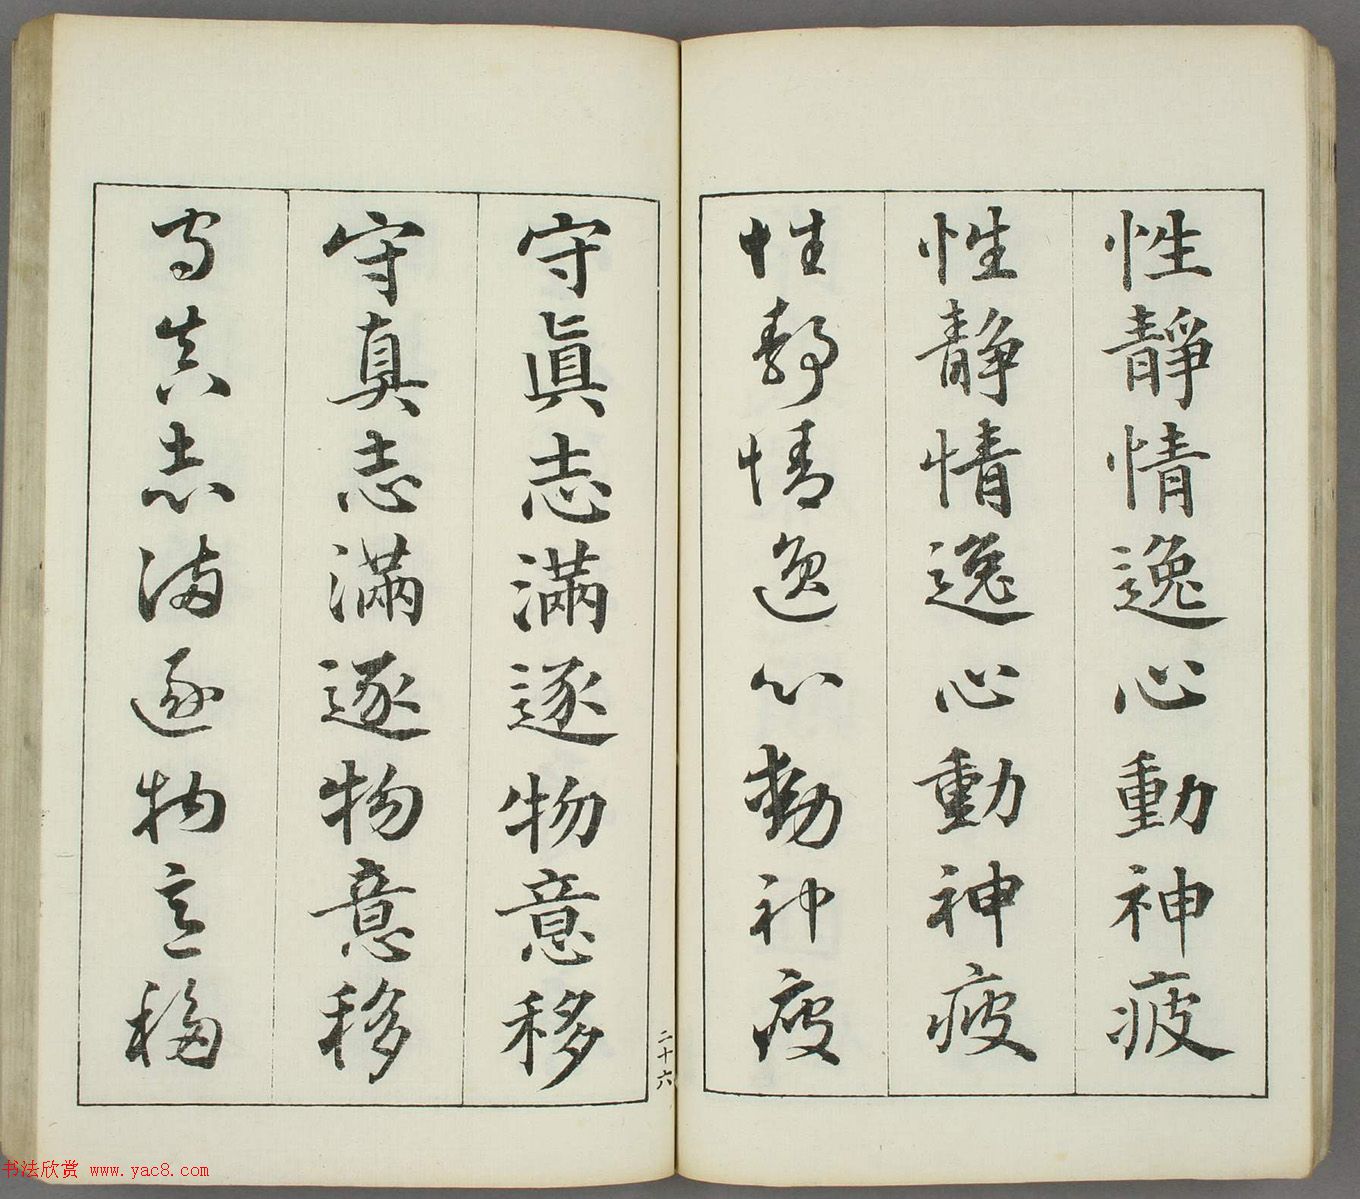 性靜情逸心動神疲
性静情逸心動神疲
性静情逸心動神疲
守眞志滿逐物意移
守真志滿逐物意移
守真志滿逐物意移
二十六
书法欣赏 www.yac8.com